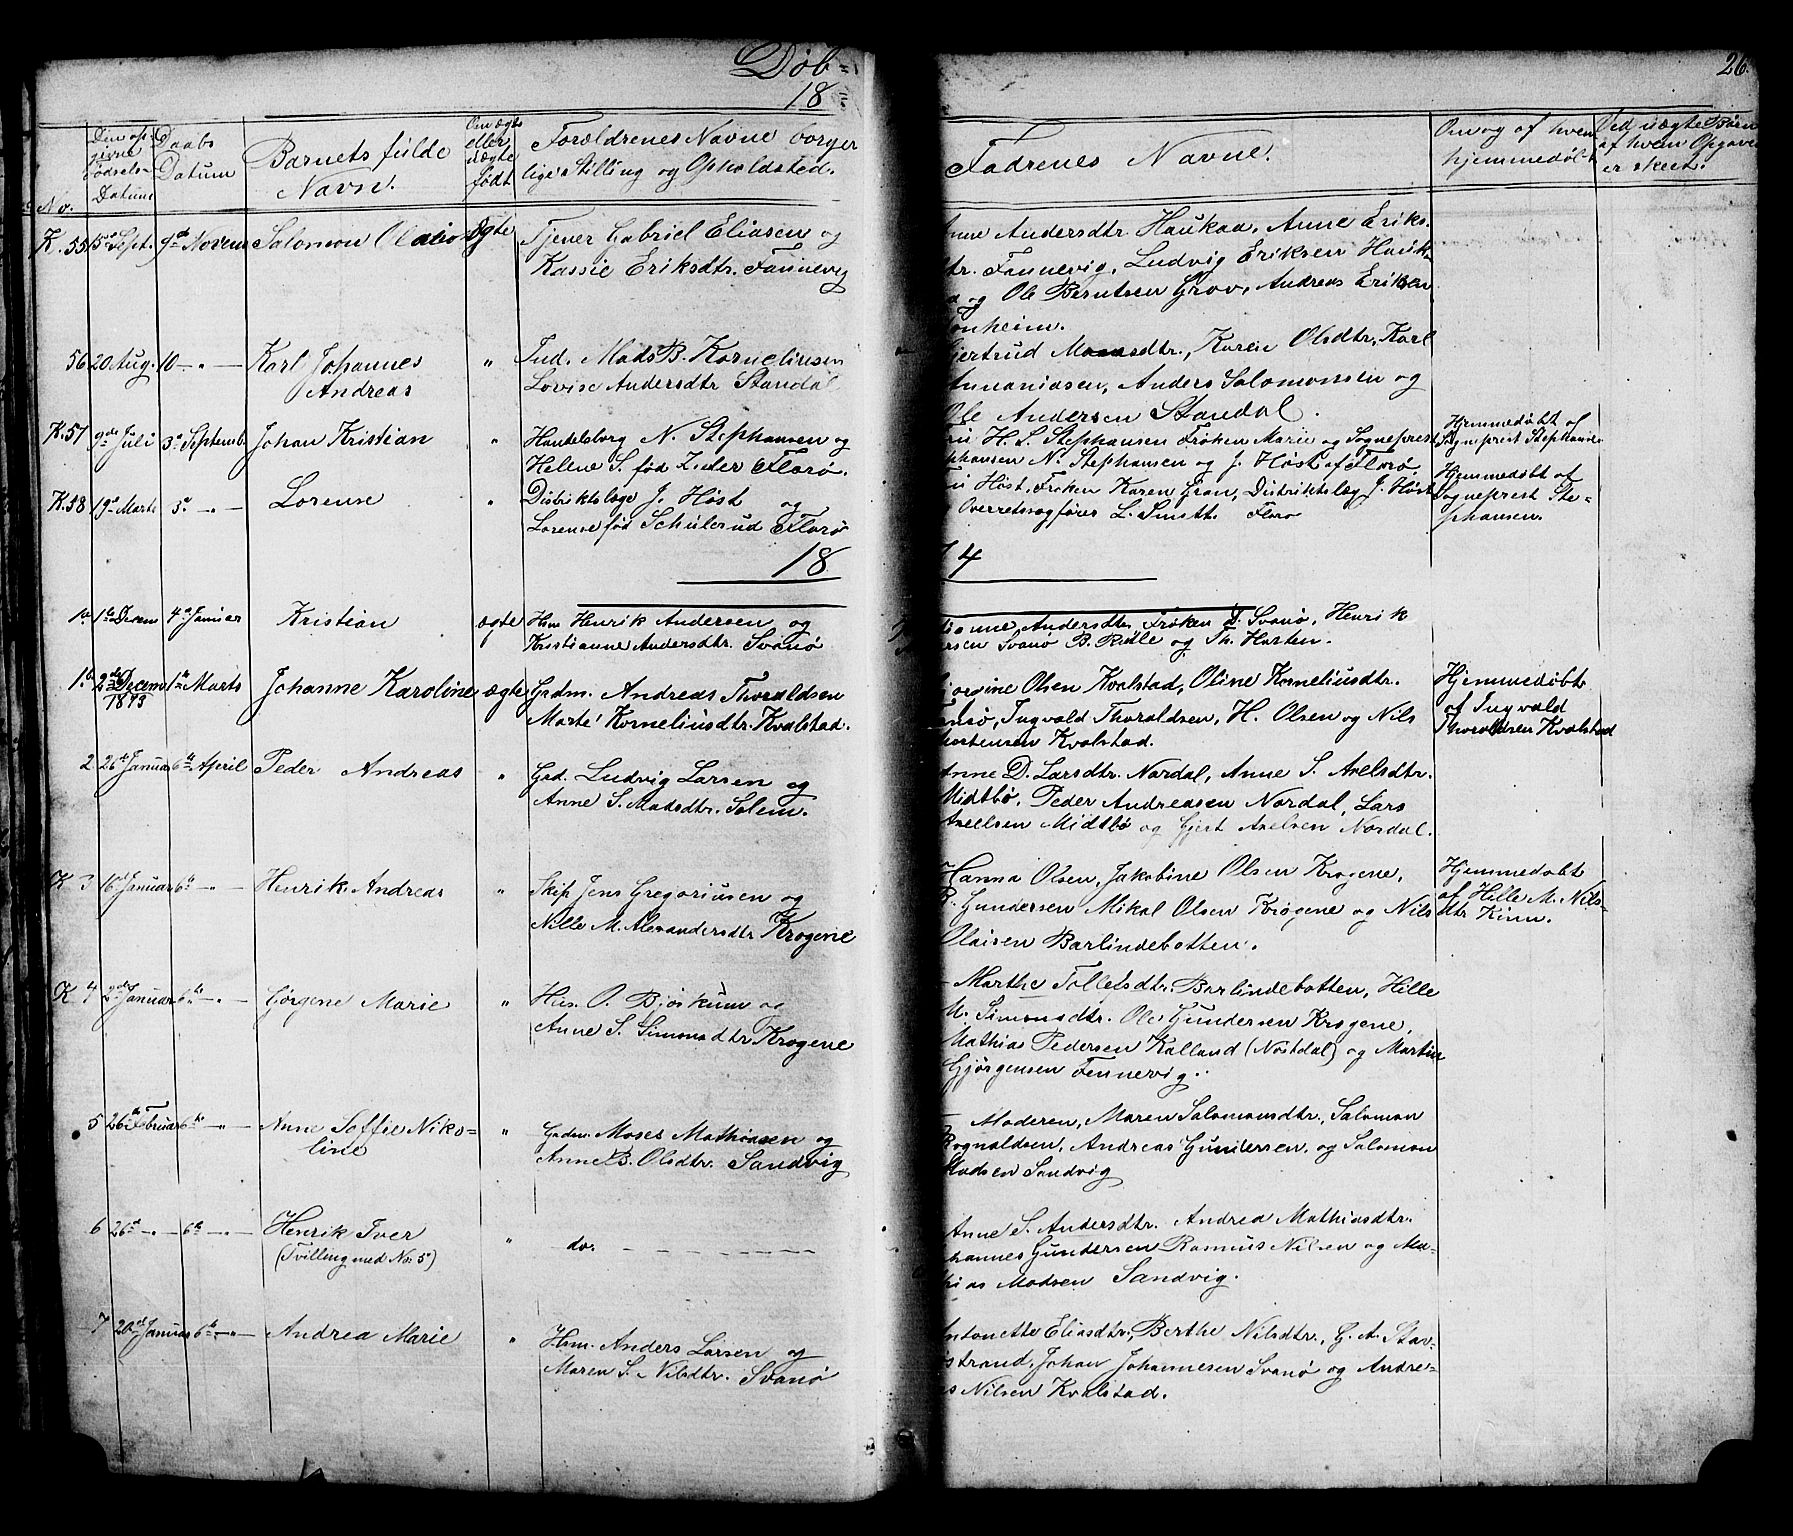 Døb=
18
26.
No.
Den opgivne Fødsels-Datum
Daabs Datum
Barnets fulde Navne.
Om ægte eller uægte født
Forældrenes Navne borgerlige Stilling og Opholdsted.
Fadrenes Navne.
Om og af hvem hjemmedøbt
Ved uægte Børn af hvem Opgaven er skeet.
K. 55 15de Sept. 9de Novem Salomon Olai ægte Tjener Gabriel Eliasen og
Kassie Eriksdtr. Fannevig
Anne Andersdtr. Haukaa, Anne Eriks-
dtr. Fannevig, Ludvig Eriksen Hauk-
aa og Ole Berntsen Grov, Andreas Eriksen
onheim.
56 20 Aug. 10 - „ - Karl Johannes
Andreas
„ Ind. Mads B. Korneliusen
Lovise Andersdtr Standal
Gjertrud Monsdtr., Karen Olsdtr, Karl
Annaniasen, Anders Salomonsen og
Ole Andersen Standal.
K. 57 9de Juli 3de Septemb. Johan Kristian „ Handelsborg N. Stephansen og
Helene S. født Zeder Florø.
Fru H. S. Stephansen Frøken Marie og Sogneprest
Stephansen N. Stephansen og J. Høst af Florø.
Hjemmedøbt af
Sogneprest Stephansen
K. 58 19de Marts 3de - „ - Lorense „ Distriktslæge J. Høst og
Lorense fød Schulerud Florø
Fru Høst, Frøken Karen Gran, Distriktslæg J. Høst
Overretssagfører L. Smitt. Florø
Hjemmedøbt af
Sogneprest Ste-
phansen.
18 74
1a 1ste Decem 4de Januer Kristian ægte Hsm Henrik Andersen og
Kristianne Andersdtr. Svanø
Andersdtr. Frøken D. Svanø, Henrik
ersen Svanø B. Relle og Th. Horten.
1b 2den Decem 1873 1ste Marts Johanne Karoline ægte Grdm. Andreas Thoraldsen
Marte Korneliusdtr. Kvalstad.
Olsen Kvalstad, Oline Korneliusdtr.
ansø, Ingvald Thoraldsen, H. Olsen og Nils
Mortensen Kvalstad.
Hjemmedøbt
af Ingvald
Thoraldsen Kvalstad
2. 26de Januar 6te April Peder Andreas „ Grd. Ludvig Larsen og
Anne S. Madsdtr. Solem.
Anne D. Larsdtr. Nordal, Anne S. Axelsdtr.
Midtbø, Peder Andreasen Nordal, Lars
Axelsen Midtbø og Gjert Axelsen Nordal.
K 3 16de Januar 6te - „ - Henrik Andreas „ Skip Jens Gregoriusen og
Nille M. Alexandersdtr Krogene
Hanna Olsen, Jakobine Olsen Krogene,
R. Gundersen Mikal Olsen Krogene og Nils
Olaisen Barlindebotten.
Hjemmedøbt
af Hille M. Nils-
dtr. Kinn.
K 4 2den Januar 6te - „ - Gørgene Marie „ Hus. O. Bjørkum og
Anne S. Simonsdtr Krogene
Marthe Tollefsdtr. Barlindebotten, Hille
M. Simonsdtr. Ole Gundersen Krogene,
Mathias Pedersen Kalland (Nostdal) og Martin
Gjørgensen Fennevig.
5 26de Februar 6te - „ - Anne Soffie Niko-
line
„ Grdm. Moses Mathiasen og
Anne B. Olsdtr. Sandvig
Moderen, Maren Salomonsdtr., Salomon
Rognaldsen, Andreas Gundersen, og Salomon
Madsen Sandvig
6 26de - „ - 6te - „ - Henrik Iver
(Tvilling med No. 5)
„ do. - - - - - -
Anne S. Andersdtr. Andrea Mathiasdtr.
Johannes Gundersen Rasmus Nilsen og Ma-
thias Madsen Sandvig.
7 20de Januar 6te - „ - Andrea Marie „ Hsm. Anders Larsen og
Maren S. Nilsdtr. Svanø
Antonette Eliasdtr., Berthe Nilsdtr., G. A. Stav-
strand, Johan Johannesen Svanø og Andre-
as Nilsen Kvalstad.